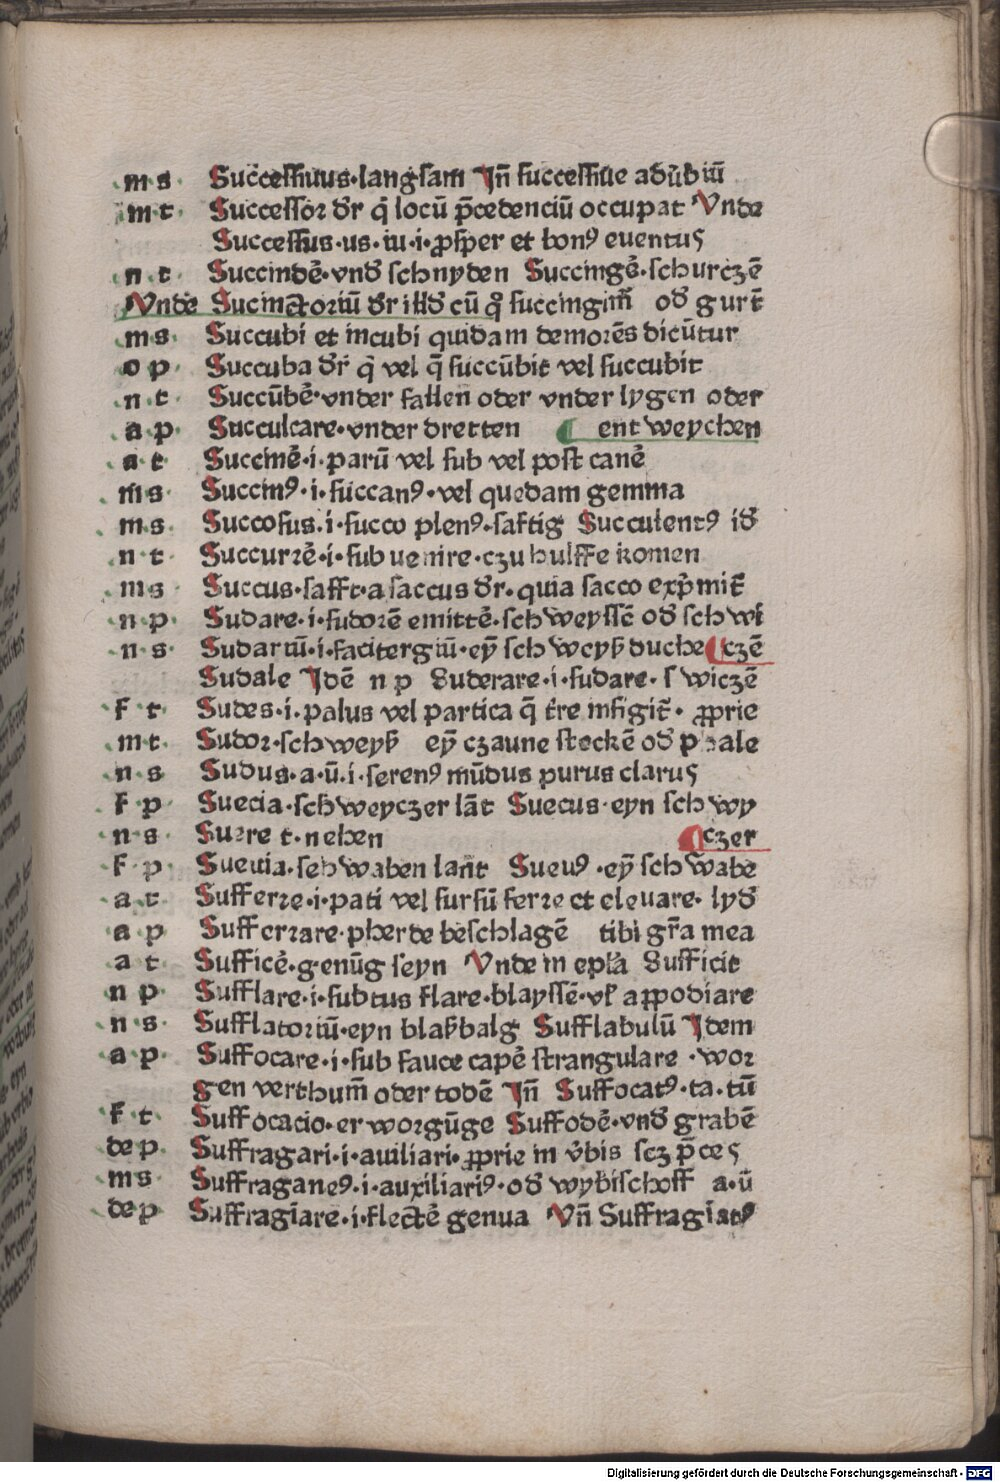 m s Succeſſiuus·langſam Jn̄ ſucceſſiue adūbiū
m t Succeſſor dr̄ q̄ locū p̄cedenciū occupat Vnde
Succeſſus·us·iu·i·ꝓſper et bonꝰ euentus
n t Succindē·vnd̄ ſchnyden Succingē·ſchurczē
Vnde Sucinctoriū dr̄ illd̄ cū qͦ ſuccingim̄ od̄ gurt̄
m s Succubi et incubi quidam demorēs dicūtur
o p Succuba dr̄ q̄ vel q̄ ſuccūbit vel ſuccubit
n t Succūbē·vnder fallen oder vnder lygen oder
a p Succulcare·vnder dretten ent weychen
a t Succinē·i·parū vel ſub vel poſt canē
m s Succinꝰ·i·ſuccanꝰ·vel quedam gemma
m s Succoſus·i·ſucco plenꝰ·ſaftig Succulentꝰ id̄
n t Succurrē·i·ſub uenire·czu hulffe komen
m s Succus·ſafft·a ſaccus dr̄·quia ſacco exp̄mit̄
n p Sudare·i·ſudorē emittē·ſchweyſſē od̄ ſchwi
n s Sudariū·i·facitergiū·eȳ ſchweyß duche czē
Sudale Jdē n p Suderare·i·ſudare·ſ wiczē
f t Sudes·i·palus vel partica q̄ t̄re infigit̄· ꝓprie
m t Sudor·ſchweyß eȳ czaune ſteckē od̄ phale
n s Sudus·a·ū·i·ſerenꝰ mūdus purus clarus
f p Suecia·ſchweyczer lāt Suecus·eyn ſchwy
n s Suere t·nehen czer
f p Sueuia·ſchwaben lant̄ Sueuꝰ·eȳ ſchwabe
a t Sufferre·i·pati vel ſurſū ferre et eleuare·lyd̄
a p Sufferrare·pherde beſchlagē tibi gr̄a mea
a t Sufficē·genūg ſeyn Vnde in epl̄a Sufficit
n p Sufflare·i·ſubtus flare·blayſſē·vl̄ appodiare
n s Sufflatoriū·eyn blaßbalg Sufflabulū Jdem
a p Suffocare·i·ſub fauce capē ſtrangulare·wor
gen verthum̄ oder todē Jn̄ Suffocatꝰ·ta·tū
f t Suffocacio·erworgūge Suffodē·vnd̄ grabē
de p Suffragari·i·auiliari·ꝓprie in v̄bis ſcꝫ p̄ces
m s Suffraganeꝰ·i·auxiliariꝰ·od̄ wybiſchoff a·ū
de p Suffragīare·i·flectē genua Vn̄ Suffragīatꝰ
Digitalisierung gefördert durch die Deutsche Forschungsgemeinschaft - DFG